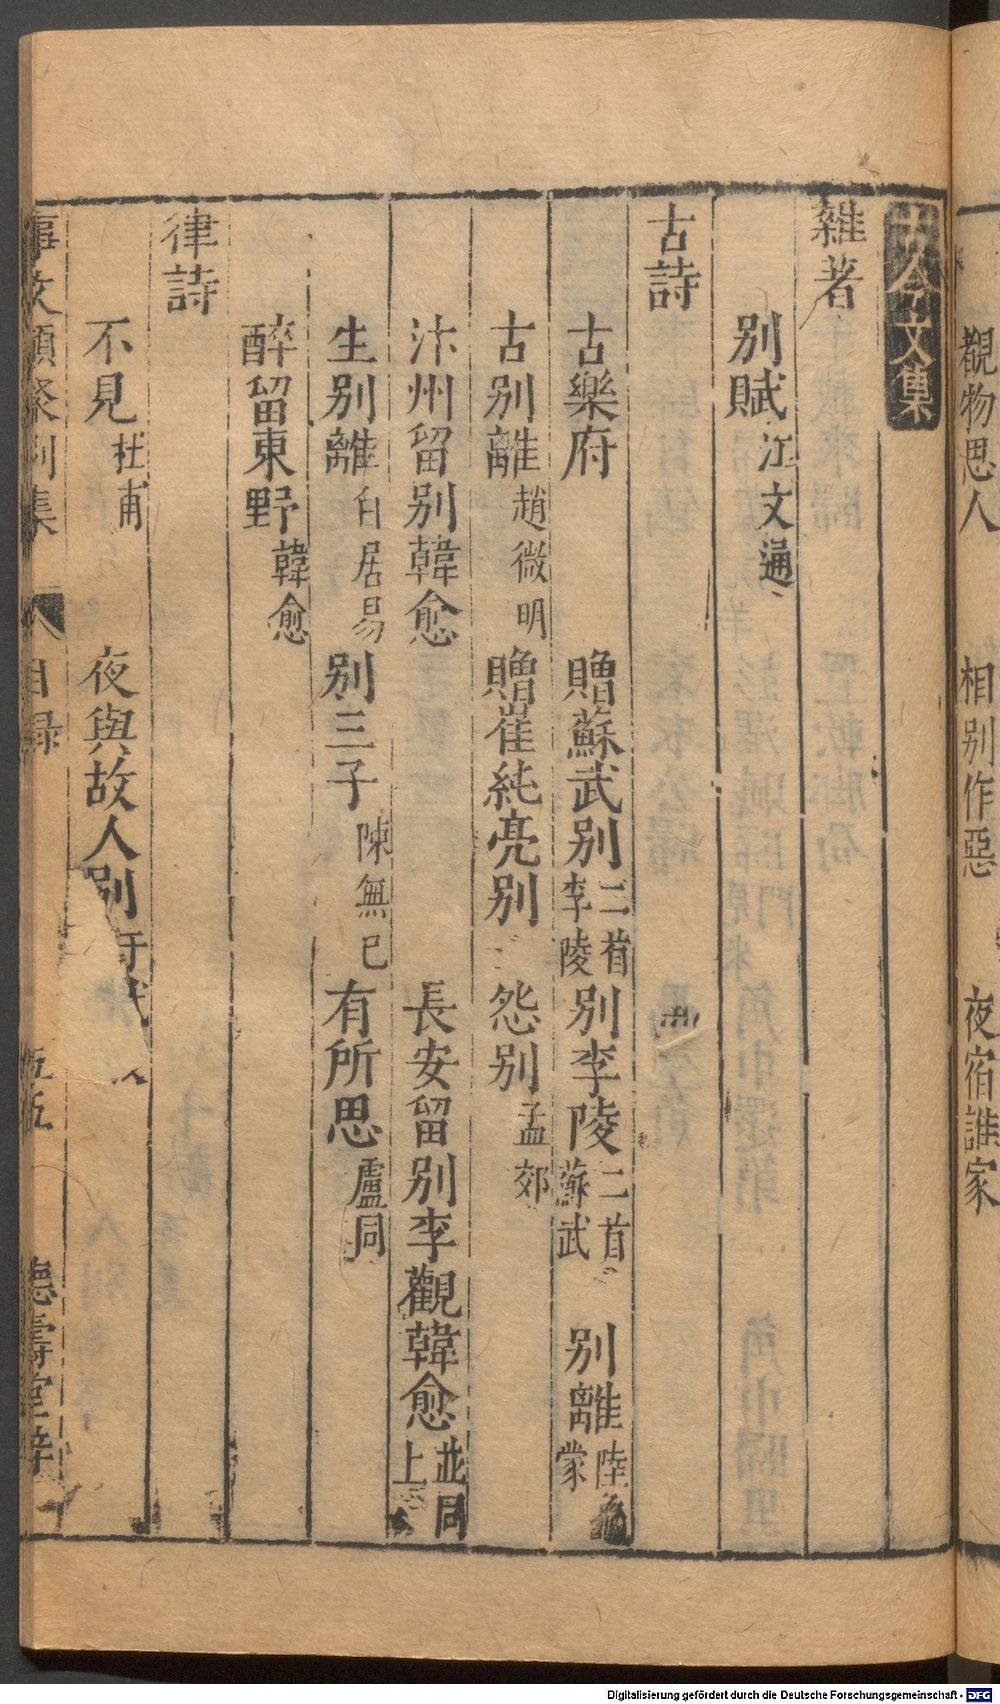 觀物思人 相别作惡 夜宿誰家
古今文集
雜著
别賦 江文通
古詩
古樂府 贈蘇武别 二首李陵 别李陵 二首蘇武 别離 陸龜蒙
古别離 趙微明 贈崔純亮别 怨别 孟郊
汴州留别韓愈 長安留别李觀韓愈 並同上
生别離 白居易 别三子 陳無已 有所思 盧同
醉留東野 韓愈
律詩
不見 杜甫 夜與故人别 于武
事文類聚别集 八 目録 五五 德壽堂梓
Digitalisierung gefördert durch die Deutsche Forschungsgemeinschaft - DFG